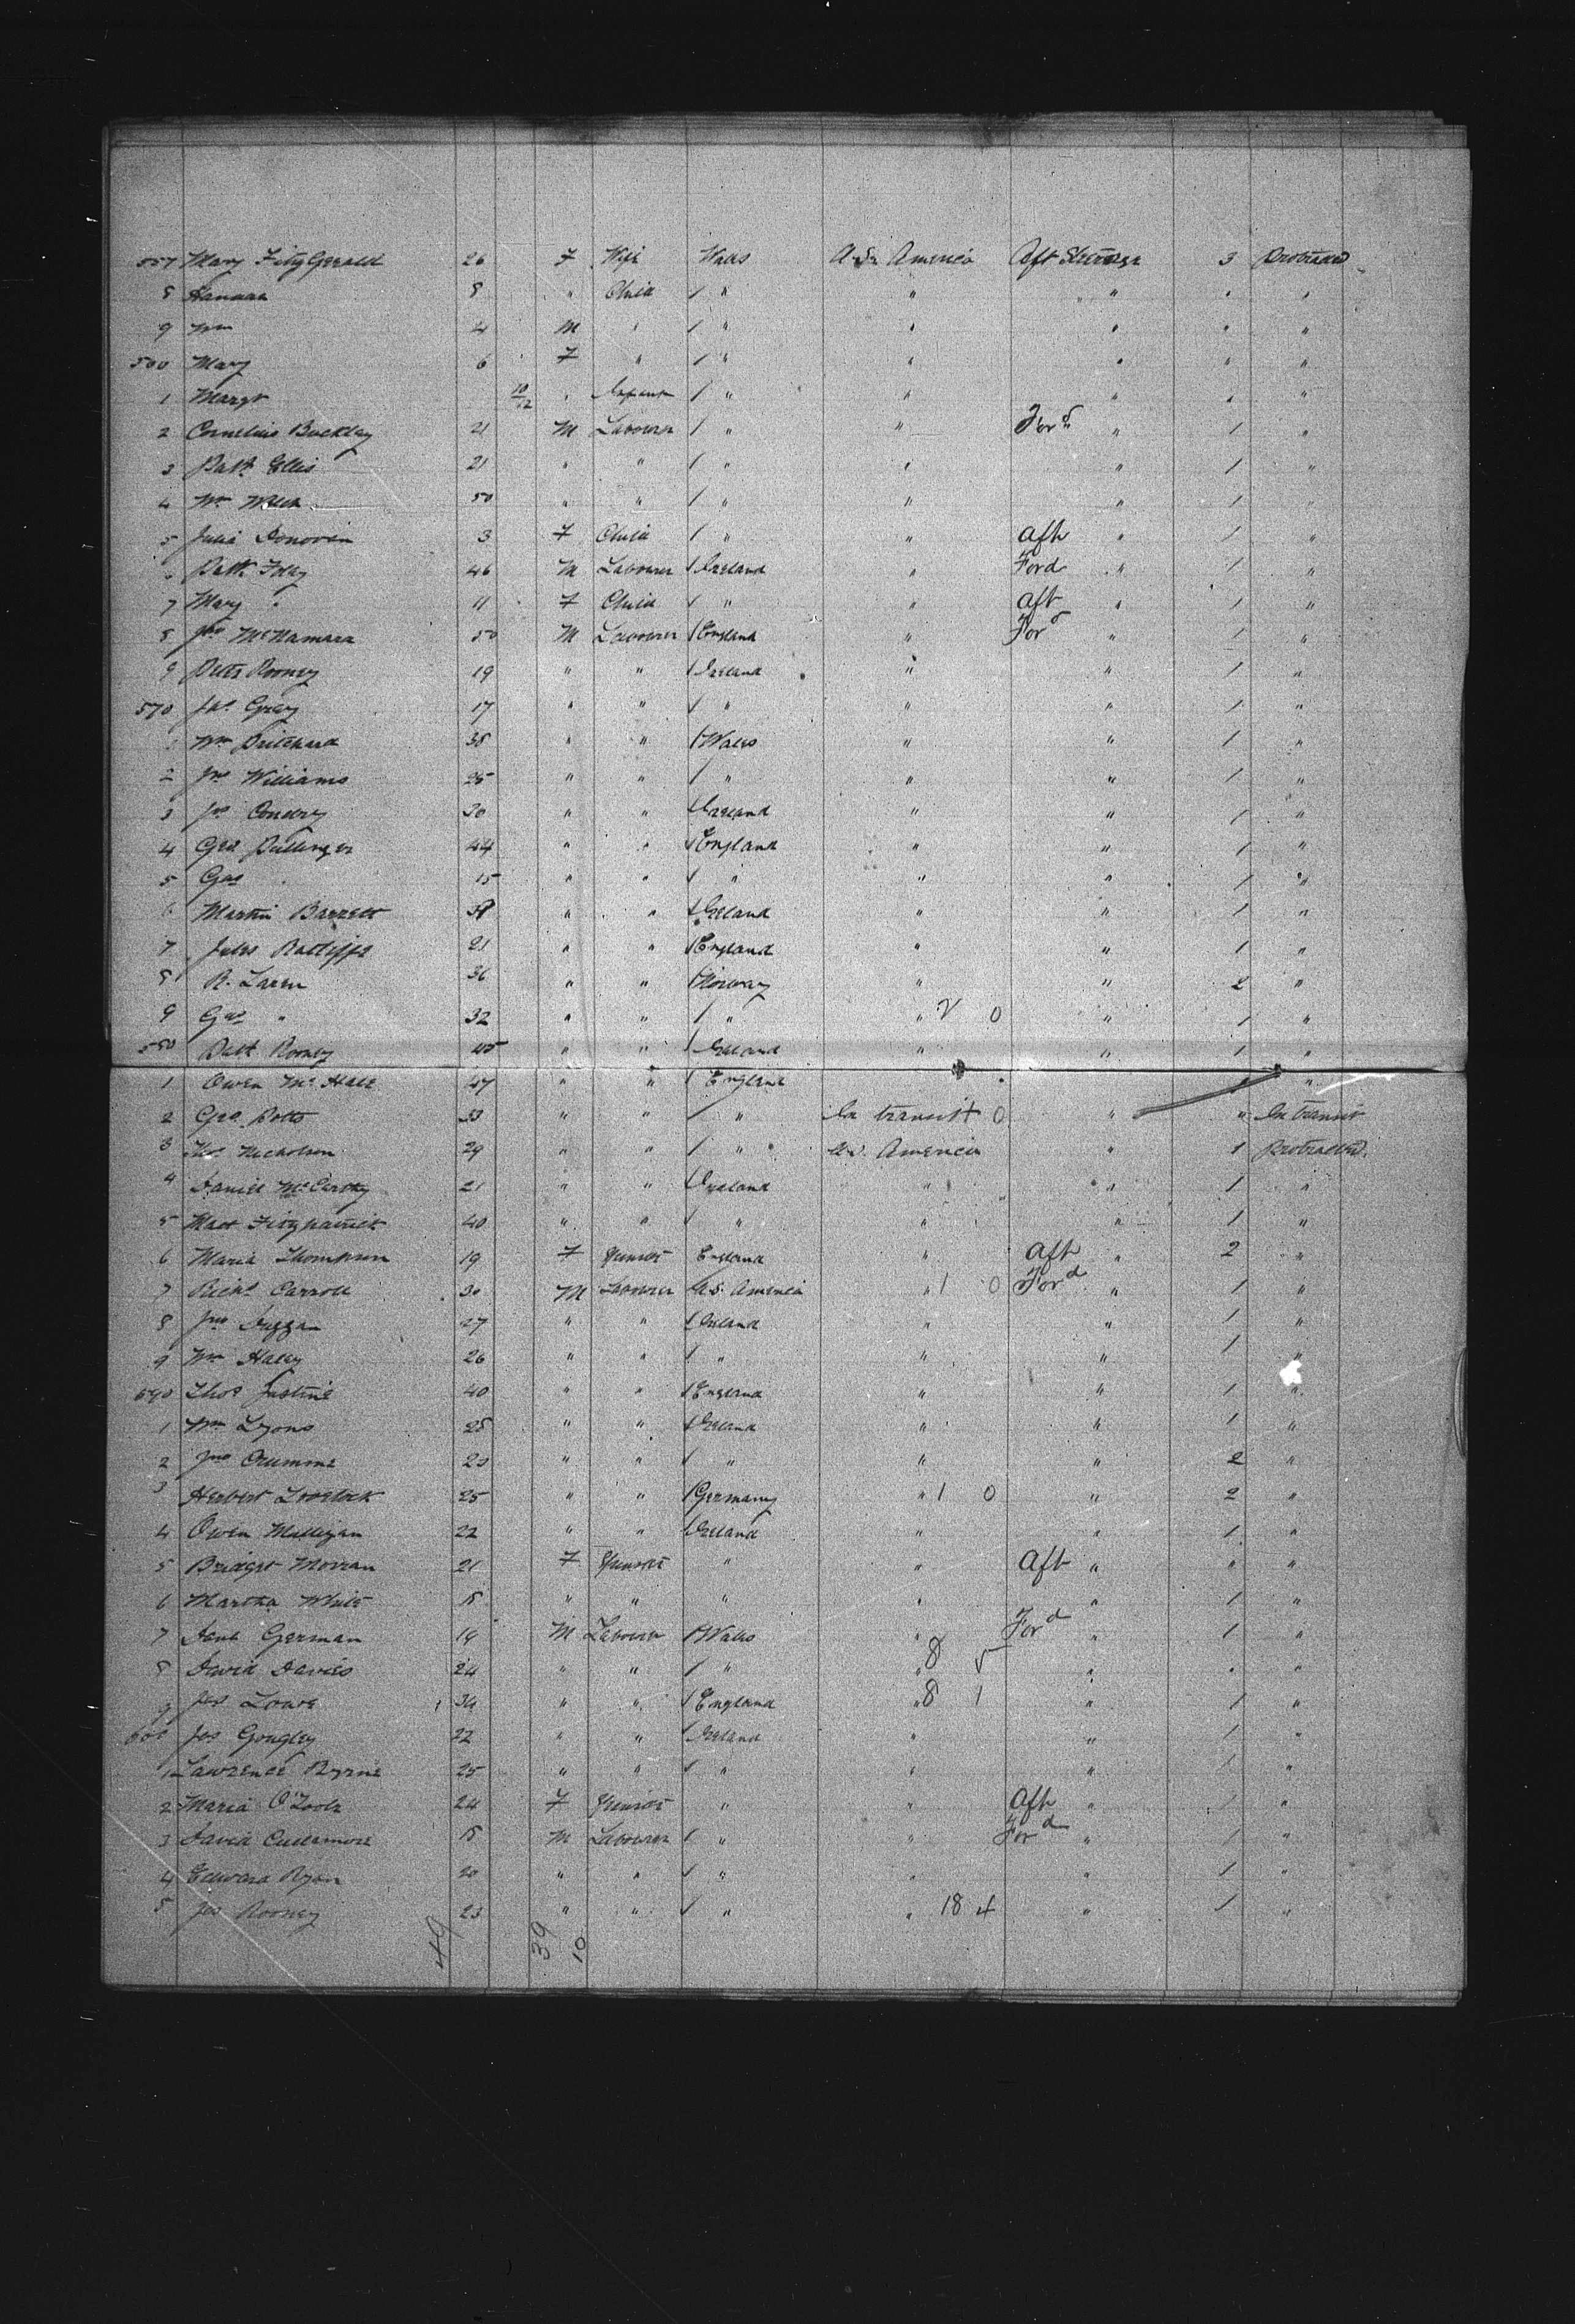 557 Mary FitzGerald 26 F Wife Wales U.S. America Aft Steerage 3 Protracted
8 Hannah 8 " Child / " " " " "
9 Wm 4 M " / " " " " "
560 Mary 6 F " / " " " " "
1 Margt 10/12 " Infant / " " " " "
2 Cornelius Buckley 21 M Labourer / " " Ford " 1 "
3 Patk Ellis 21 " " / " " " 1 "
4 Wm 50 " " / " " " 1 "
5 Julia Donovan 3 F Child / " " Aft " 1 "
Patk Foley 46 M Labourer / Ireland " Ford " 1 "
7 Mary " 11 F Child / " " Aft " 1 "
8 Jno McNamara 50 M Labourer / England " Ford " 1 "
9 Peter Rooney 19 " " / Ireland " " 1 "
570 Jas Gray 17 " " / " " " 1 "
Wm Pritchard 38 " " / Wales " " 1 "
2 Jno Williams 25 " " / " " " 1 "
3 Jas 20 " " / Ireland " " 1 "
4 Geo Pullinger 44 " " / England " " 1 "
5 Geo " 15 " " / " " " 1 "
6 Martin Barrett " " / Ireland " " 1 "
7 Jules Ratcliffe 21 " " / England " " 1 "
8 R. Laren 36 " " / Norway " " 2 "
9 " 32 " " / " " 2 0 " 1 "
580 Patk Rooney 45 " " / Ireland " " 1 "
1 Owen McHale 47 " " / England "
2 Geo Potts 33 " " / " In transit 0 " " In transit
3 Thos Nicholson 29 " " / " U.S. America " 1 Protracted
4 Daniel McCarthy 21 " " / Ireland " " 1 "
5 Matt Fitzpatrick 40 " " / " " " 1 "
6 Maria Thompson 19 F Spinster England " Aft " 2 "
7 Richd Carroll 30 M Labourer U.S. America " 1 0 Ford " 1 "
8 Jno Duggan 27 " " / Ireland " " 1 "
9 Wm Haley 26 " " / " " " 1 "
590 Thos Justine 40 " " / England " " 1 "
1 Wm Lyons 28 " " / Ireland " " 1 "
2 Jno " " / " " " 2 "
3 Herbert 25 " " / Germany " 1 0 " 2 "
4 Owen Mulligan 22 " " / Ireland " " 1 "
5 Bridget Morran 21 F Spinster " " Aft " " "
6 Martha White 18 " " " " " 1 "
7 German 19 M Labourer / Wales " Ford " 1 "
8 David Davies 24 " " / " " 8 5 " " "
9 Jas Lowe 34 " " / England " 8 1 " 1 "
600 Jas Gongley 22 " " / Ireland " " 1 "
1 Lawrence Byrne 25 " " / " " " 1 "
2 Maria O'Toole 24 F Spinster " " Aft " 1 "
3 David Cullamore 18 M Labourer / " " Ford " 1 "
4 Edward Ryan 20 " " / " " " 1 "
5 Jas Rooney 23 " " / " " 18 4 " 1 "
49 39 10